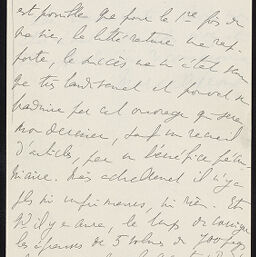 est possible que pour la 1re fois de
ma vie, la littérature me rap-
porte, le succès ne m'étant venu
que très tard et il pouvait se
traduire par cet ouvrage qui sera
mon dernier, sauf un recueil
d'articles, par un bénéfice pécu-
niaire. Mais actuellement il n'y a
plus ni imprimeurs, ni rien. Et
s'il y en a, le temps de corriger
les épreuves de 5 volumes de 700 pages